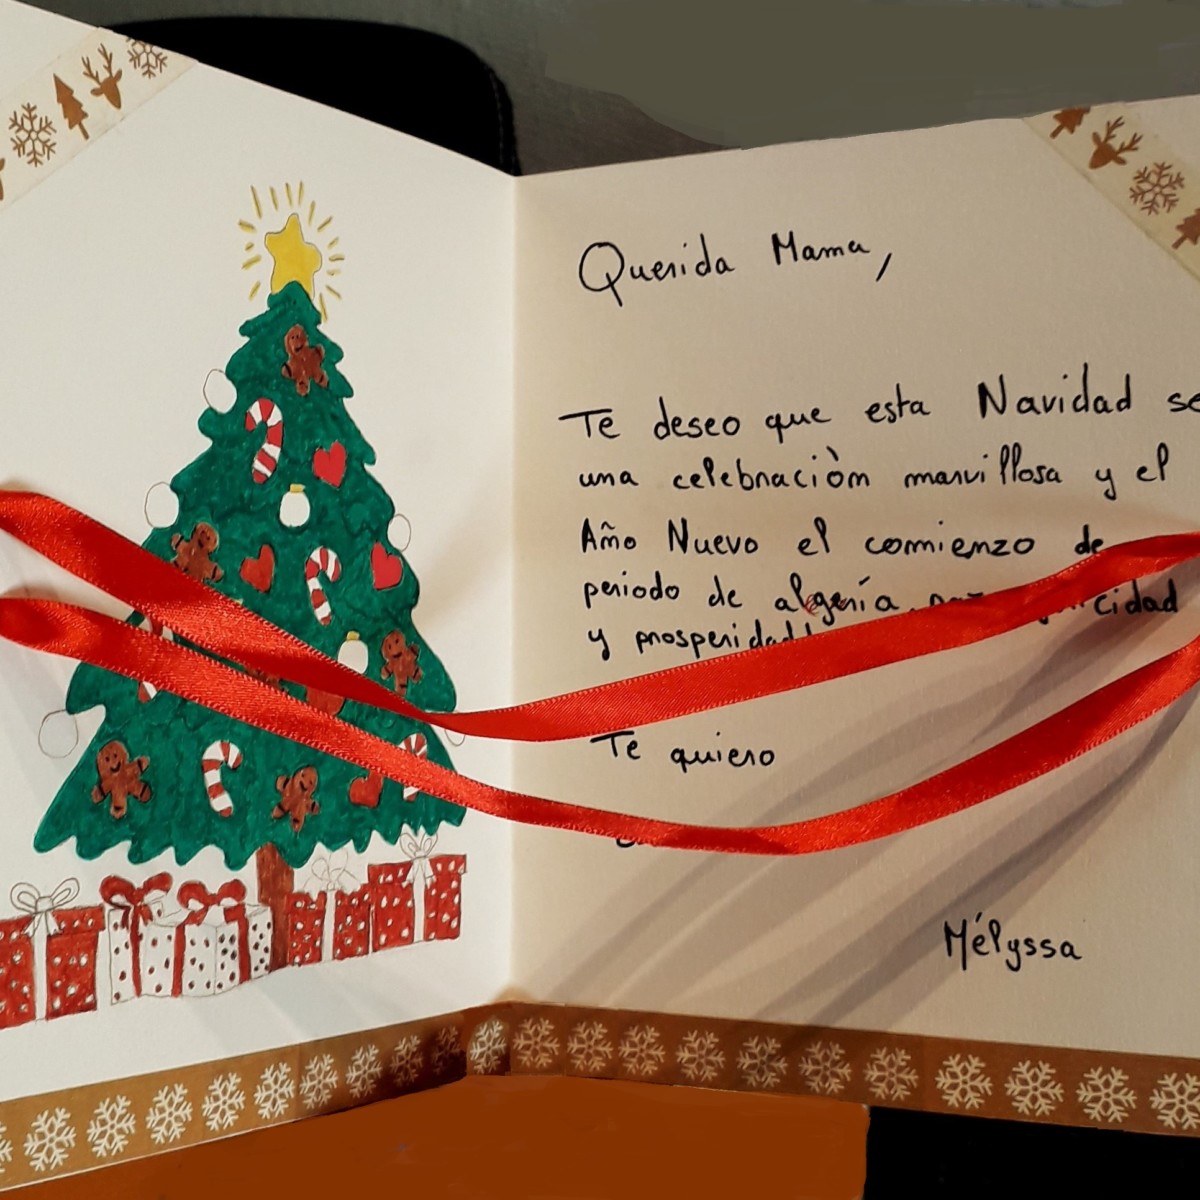 Querida Mama,
Te deseo que esta Navidad se
una celebraciòn marvillosa y el
Año Nuevo el comienzo de
periodo de algería
y prosperidad
Te quiero
Mélyssa